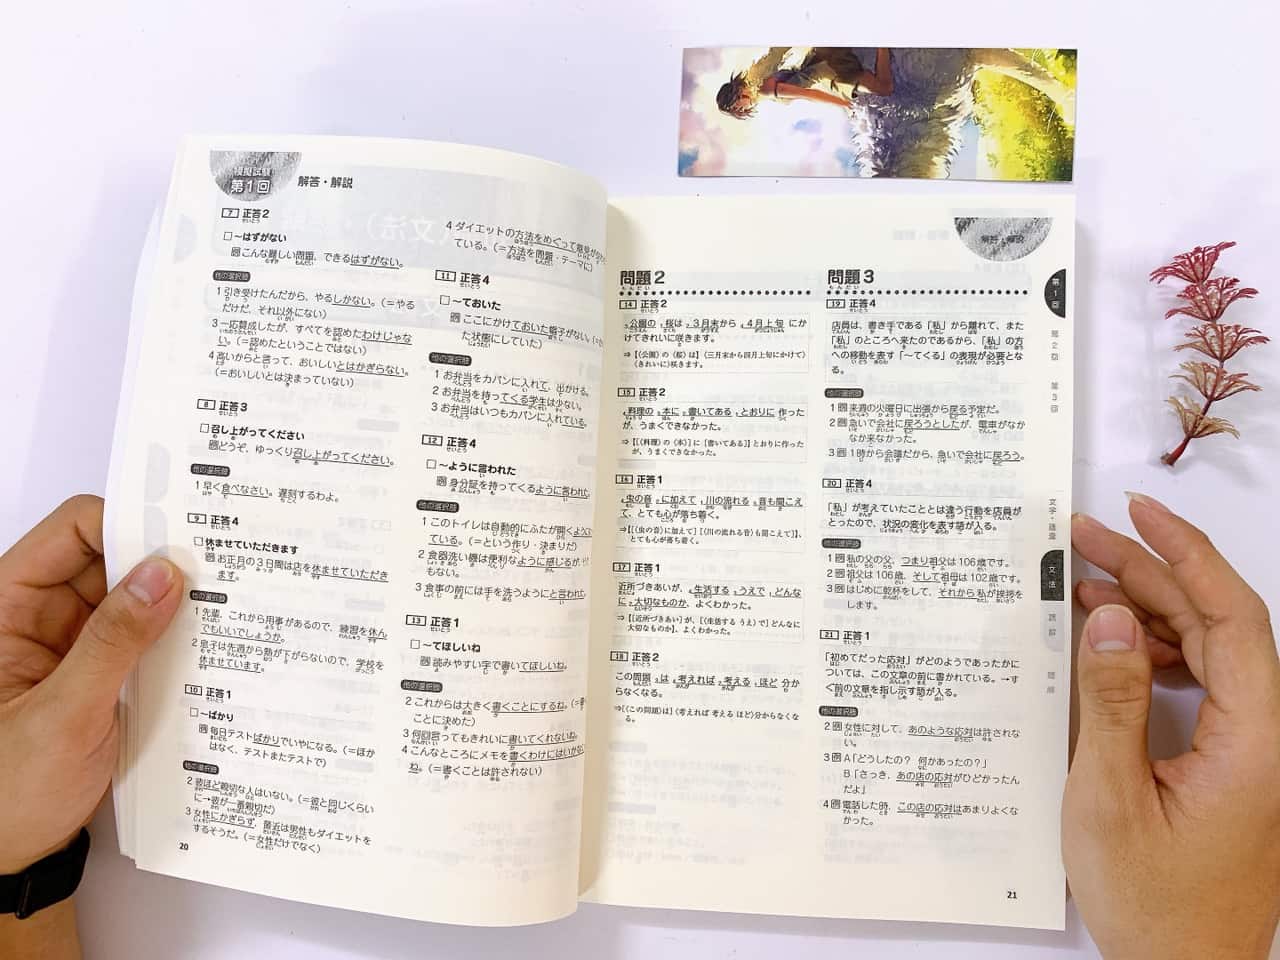 模擬試験
第1回
解答・解説
7 正答2
□～はずがない
例 こんな難しい問題、できるはずがない。
他の選択肢
1 引き受けたんだから、やるしかない。（＝やる
だけだ、それ以外にない）
3 一応賛成したが、すべてを認めたわけじゃな
い。（＝認めたということではない）
4 高いからと言って、おいしいとはかぎらない。
（＝おいしいとは決まっていない）
8 正答3
□召し上がってください
例 どうぞ、ゆっくり召し上がってください。
他の選択肢
1 早く食べなさい。遅刻するわよ。
9 正答4
□休ませていただきます
例 お正月の3日間は店を休ませていただき
ます。
他の選択肢
1 先輩、これから用事があるので、練習を休ん
でもいいでしょうか。
2 息子は先週から熱が下がらないので、学校を
休ませています。
10 正答1
□～ばかり
例 毎日テストばかりでいやになる。（＝ほか
はなく、テストまたテストで）
他の選択肢
2 彼ほど親切な人はいない。（＝彼と同じくらい
に→彼が一番親切だ）
3 女性にかぎらず、最近は男性もダイエットを
するそうだ。（＝女性だけでなく）
20
4 ダイエットの方法をめぐって意見が
ている。（＝方法を問題・テーマに）
11 正答4
□～ておいた
例 ここにかけておいた帽子がない。
た状態にしていた）
他の選択肢
1 お弁当をカバンに入れて、出かける。
2 お弁当を持ってくる学生は少ない。
3 お弁当はいつもカバンに入れている。
12 正答4
□～ように言われた
例 身分証を持ってくるように言われた
他の選択肢
1 このトイレは自動的にふたが開くように
ている。（＝という作り・決まりだ）
2 食器洗い機は便利なように感じるが
もない。
3 食事の前には手を洗うようにと言われ
13 正答1
□～てほしいね
例 読みやすい字で書いてほしいね。
他の選択肢
2 これからは大きく書くことにするね。
ことに決めた）
3 何回言ってもきれいに書いてくれないね。
4 こんなところにメモを書くわけにはいかない
ね。（＝書くことは許されない）
解答・解説
問題2
14 正答2
公園の 桜は 3月末から 4月上旬 にか
けてきれいに咲きます。
⇒［〈公園〉の〈桜〉は］〈三月末から四月上旬にかけて〉
〈きれいに〉咲きます。
15 正答2
料理の 本に 書いてある とおりに 作った
が、うまくできなかった。
⇒［〈料理〉の〈本〉に［書いてある］］とおりに作った
が、うまくできなかった。
16 正答1
虫の音 に加えて 川の流れる 音も聞こえ
て、とても心が落ち着く。
⇒［〈虫の音〉に加えて］［〈川の流れる音〉も聞こえて］、
とても心が落ち着く。
17 正答1
近所づきあいが、生活する うえで、どんな
に 大切なものか、よくわかった。
⇒［〈近所づきあい〉が、［〈生活する うえ〉で］どんなに
大切なものか］、よくわかった。
18 正答2
この問題 は 考えれば 考える ほど 分か
らなくなる。
⇒［〈この問題〉は］〈考えれば 考える ほど〉分からなくな
る。
問題3
19 正答4
店員は、書き手である「私」から離れて、また
「私」のところへ来たのであるから、「私」の方
への移動を表す「～てくる」の表現が必要とな
る。
他の選択肢
1 例 来週の火曜日に出張から戻る予定だ。
2 例 急いで会社に戻ろうとしたが、電車がなか
なか来なかった。
3 例 1時から会議だから、急いで会社に戻ろう。
20 正答4
「私」が考えていたこととは違う行動を店員が
とったので、状況の変化を表す語が入る。
他の選択肢
1 例 私の父の父、つまり祖父は106歳です。
2 例 祖父は106歳、そして祖母は102歳です。
3 例 はじめに乾杯をして、それから私が挨拶を
します。
21 正答1
「初めてだった応対」がどのようであったかに
ついては、この文章の前に書かれている。→す
ぐ前の文章を指し示す語が入る。
他の選択肢
2 例 女性に対して、あのような応対は許されな
い。
3 例 A「どうしたの？ 何かあったの？」
B「さっき、あの店の応対がひどかったん
だよ」
4 例 電話した時、この店の応対はあまりよくな
かった。
第1回
第2回
第3回
文字・語彙
文法
読解
聴解
21